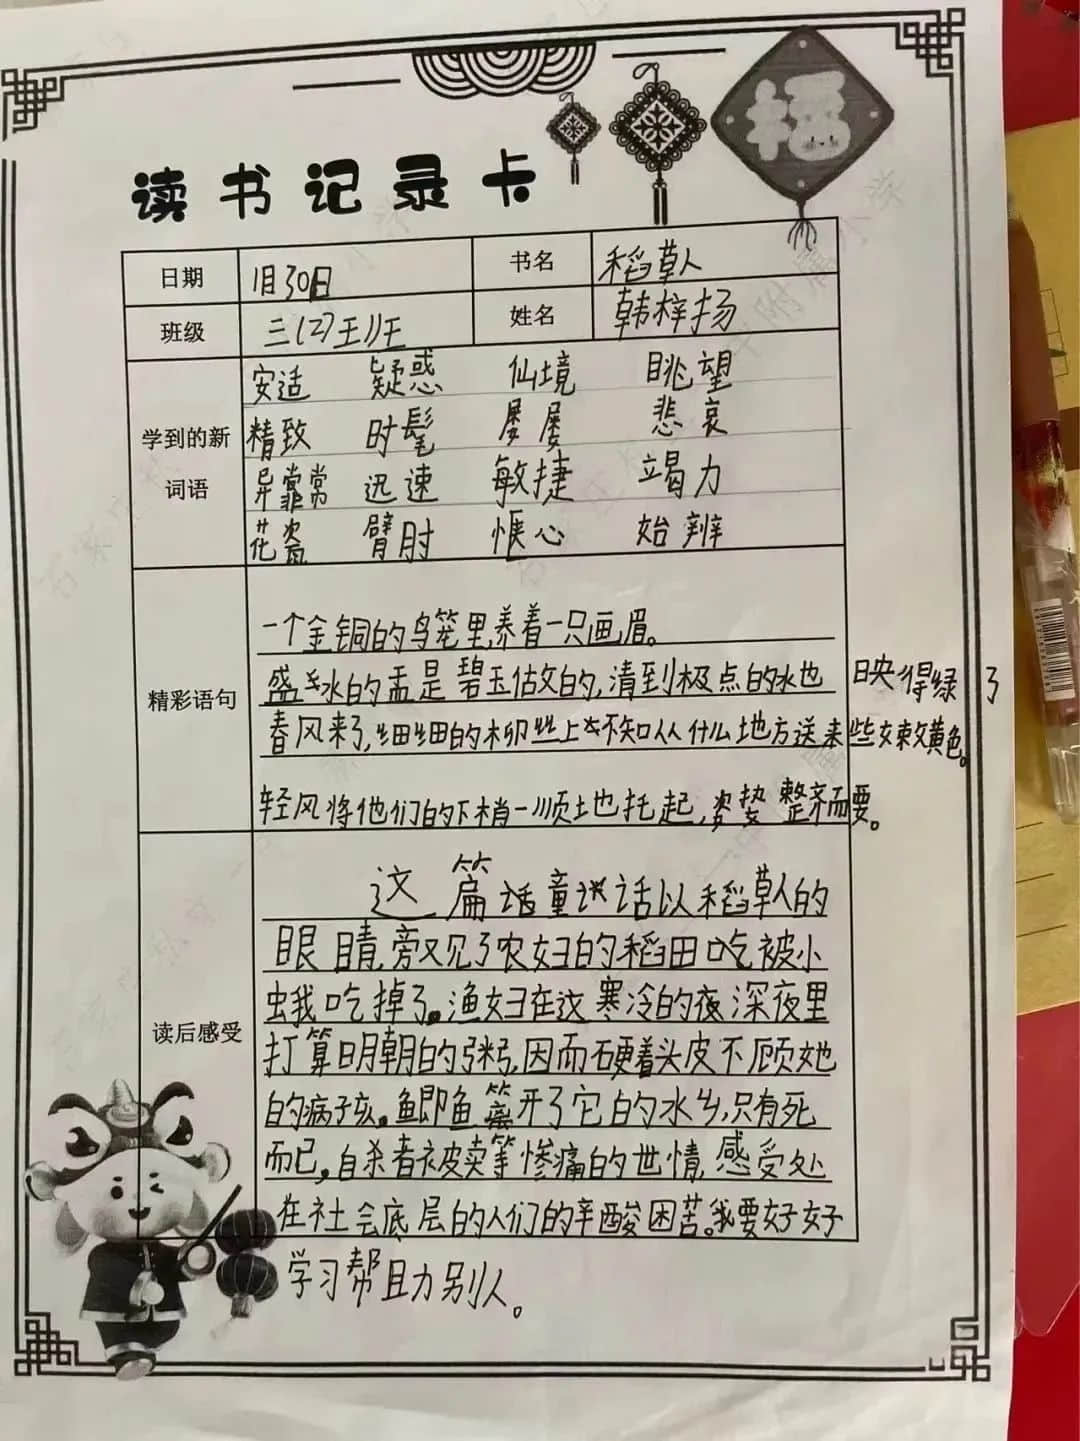 福
读书记录卡
日期 1月30日 书名 稻草人
班级 三(2)王班 姓名 韩梓扬
学到的新词语
安适 疑惑 仙境 眺望
精致 时髦 屡屡 悲哀
异常 迅速 敏捷 竭力
花瓷 臂肘 惬心 始辨
精彩语句
一个金铜的鸟笼里,养着一只画眉。
盛水的盂是碧玉做的,清到极点的水也映得绿了
春风来了,细细的柳丝上不知从什么地方送来些嫩黄色。
轻风将他们的下梢一顺地托起,姿势整齐而要。
读后感受
这篇童话以稻草人的
眼睛,旁又见了农妇的稻田吃被小
虫我吃掉了。渔妇在这寒冷的夜深夜里
打算明朝的粥,因而硬着头皮不顾她
的病孩。鲫鱼离开了它的水乡,只有死
而已,自杀者被卖等惨痛的世情,感受处
在社会底层的人们的辛酸困苦。我要好好
学习帮助别人。